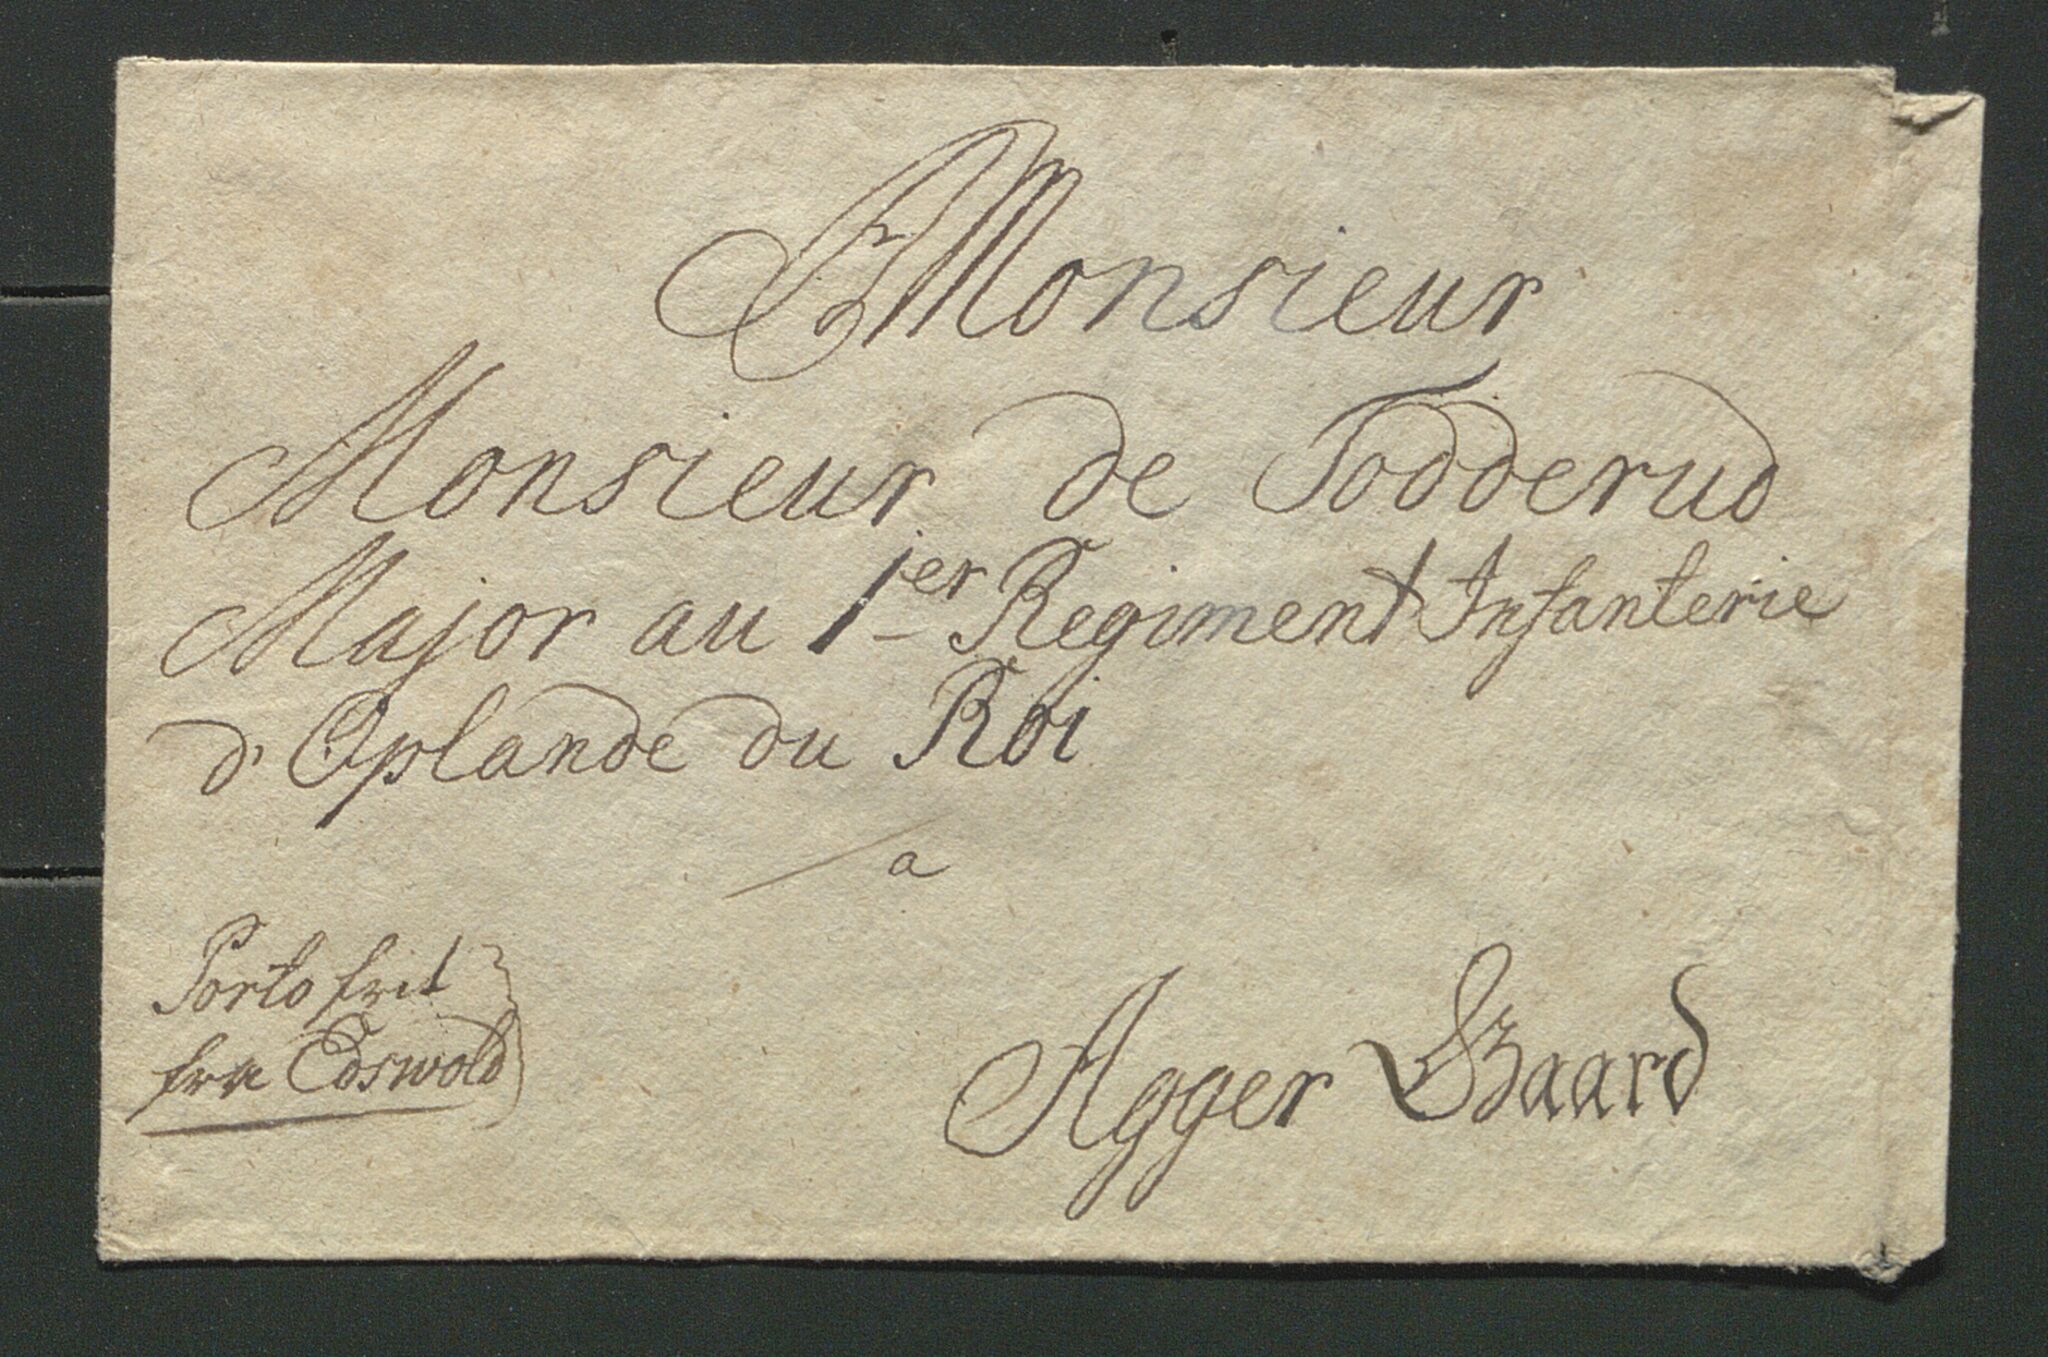 Monsieur
Monsieur de Todderud
Major au 1er Regiment Infanterie
d'Oplande du Roi
a
Agger Gaard
Porto frit
fra Edswold